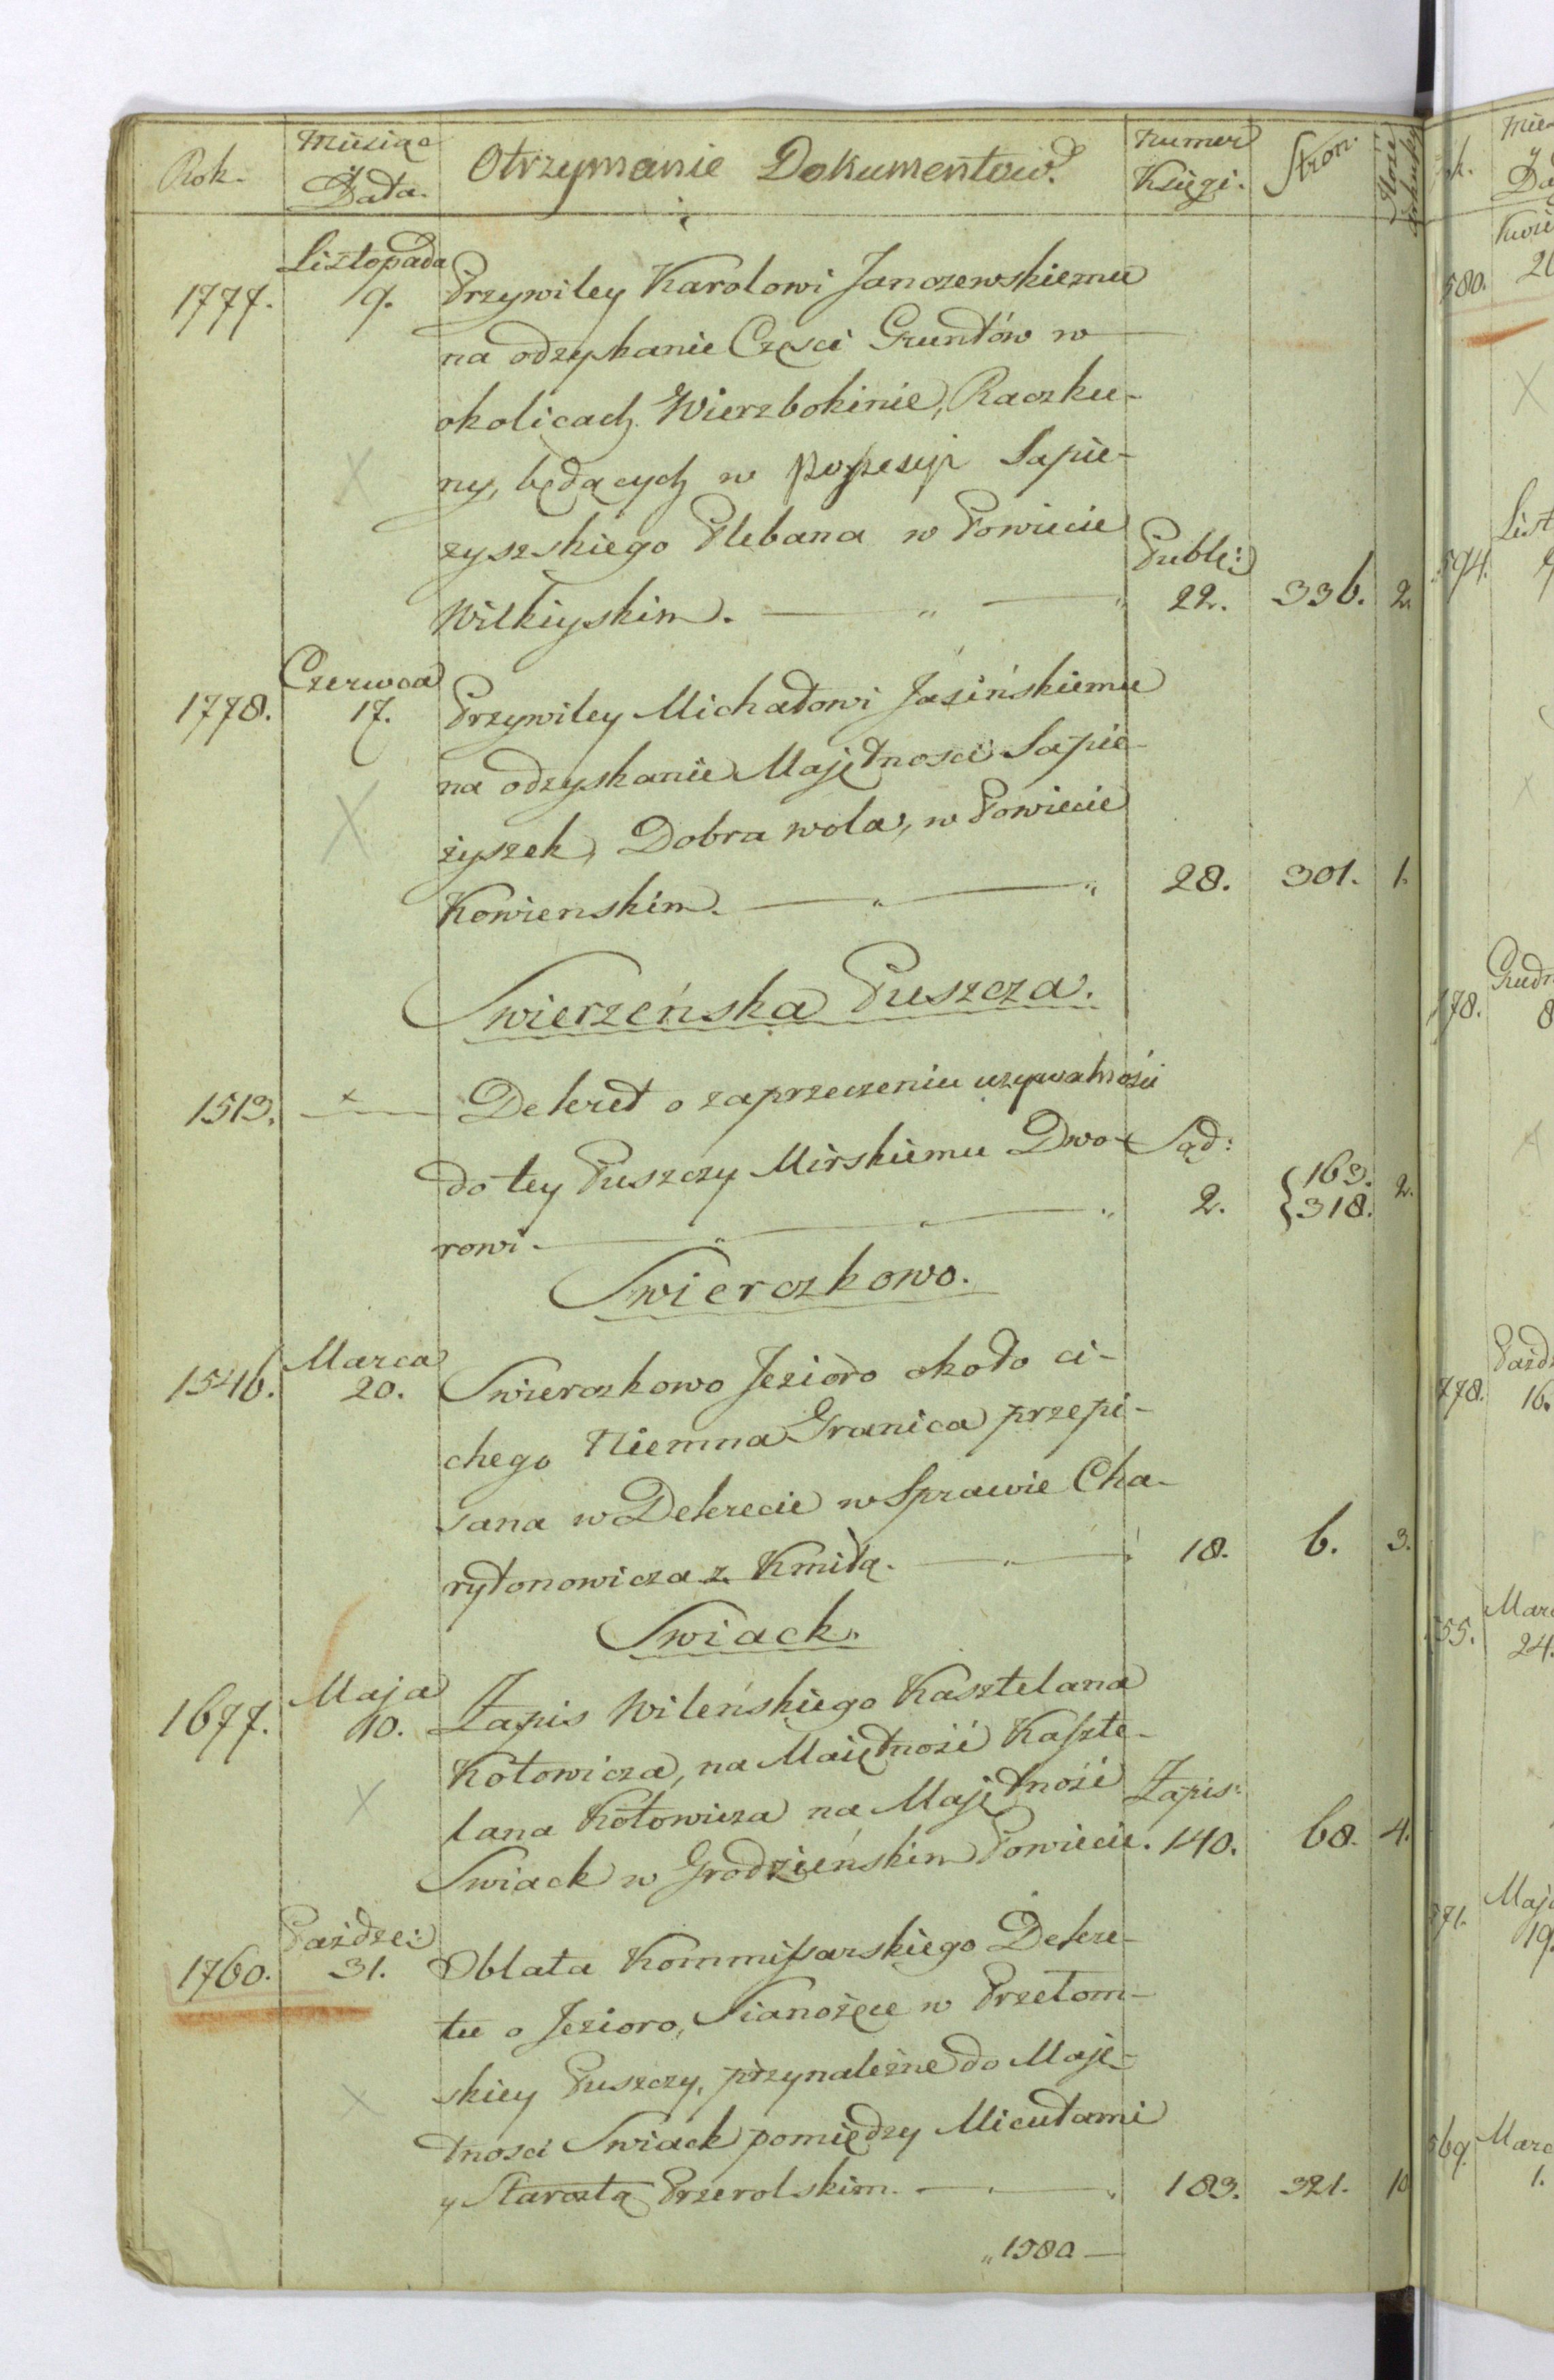 Rok. Miesiąc Data. Otrzymanie Dokumentow. Numer Księgi. Stron. Ilość arkuszy
Listopada
1777. 9. Przywiley Karolowi Janczewskiemu
na odzyskanie Częsci Gruntów w
okolicach Wierzbokinie, Raczku-
ny, będących w possesyi Sapie-
zyszskiego Plebana w Powiecie
Wilkiyskim. Publ: 22. 336. 2.
Czerwca
1778. 17. Przywiley Michałowi Jasińskiemu
na odzyskanie Majętnosci Sapie-
żyszek, Dobra wola, w Powiecie
Kowienskim. 28. 301. 1.
Swierzeńska Puszcza.
1513. Dekret o zaprzeczeniu używalności
do tey Puszczy Mirskiemu Dwo- Sąd:
rowi. 2. {163. 318. 2.
Swierczkowo.
Marca
1546. 20. Swierczkowo Jezioro około ci-
chego Niemna Granica przepi-
sana w Dekrecie w Sprawie Cha-
rytonowicza z Kmitą. 18. 6. 3.
Swiack.
Maja
1677. 10. Zapis Wileńskiego Kasztelana
Kotowicza, na Maiętność Kaszte-
lana Kotowicza na Majętność Zapis:
Swiack w Grodzieńskim Powiecie. 140. 68. 4.
Paźdze:
1760. 31. Oblata Kommissarskiego Dekre-
tu o Jezioro, Sianożęcie w Przełom-
skiey Puszczy, przynależne do Maję-
tnosci Swiack pomiędzy Micutami
y Starostą Przerolskim. 183. 321. 10
„ 1580 —
580.
594.
178.
Grudn
8
778.
16.
55.
24.
Maja
19.
569.
Marc
1.